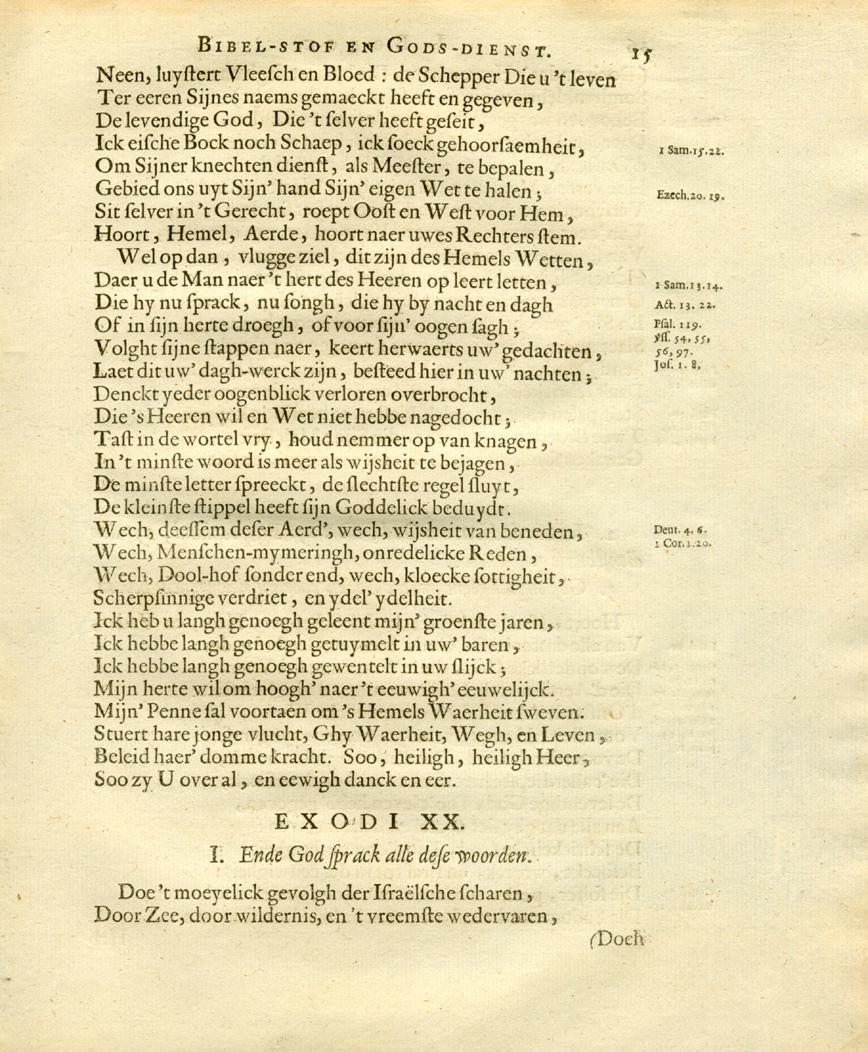 BIBEL-STOF EN GODS-DIENST. 15
Neen, luyſtert Vleeſch en Bloed : de Schepper Die u 't leven
Ter eeren Sijnes naems gemaeckt heeft en gegeven,
De levendige God, Die 't ſelver heeft geſeit,
Ick eiſche Bock noch Schaep, ick ſoeck gehoorſaemheit, 1 Sam.15.22.
Om Sijner knechten dienſt, als Meeſter, te bepalen,
Gebied ons uyt Sijn' hand Sijn' eigen Wet te halen; Ezech.20. 19.
Sit ſelver in 't Gerecht, roept Ooſt en Weſt voor Hem,
Hoort, Hemel, Aerde, hoort naer uwes Rechters ſtem.
Wel op dan, vlugge ziel, dit zijn des Hemels Wetten,
Daer u de Man naer 't hert des Heeren op leert letten, 1 Sam.13.14.
Die hy nu ſprack, nu ſongh, die hy by nacht en dagh Act. 13. 22.
Of in ſijn herte droegh, of voor ſijn' oogen ſagh; Pſal. 119.
Volght ſijne ſtappen naer, keert herwaerts uw' gedachten, ℣ſſ. 54, 55,
56, 97.
Laet dit uw' dagh-werck zijn, beſteed hier in uw' nachten; Joſ. 1. 8,
Denckt yeder oogenblick verloren overbrocht,
Die 's Heeren wil en Wet niet hebbe nagedocht;
Taſt in de wortel vry, houd nemmer op van knagen,
In 't minſte woord is meer als wijsheit te bejagen,
De minſte letter ſpreeckt, de ſlechtſte regel ſluyt,
De kleinſte ſtippel heeft ſijn Goddelick beduydt.
Wech, deeſſem deſer Aerd', wech, wijsheit van beneden, Deut. 4. 6.
Wech, Menſchen-mymeringh, onredelicke Reden, 1 Cor.1.20.
Wech, Dool-hof ſonder end, wech, kloecke ſottigheit,
Scherpſinnige verdriet, en ydel' ydelheit.
Ick heb u langh genoegh geleent mijn' groenſte jaren,
Ick hebbe langh genoegh getuymelt in uw' baren,
Ick hebbe langh genoegh gewentelt in uw ſlijck;
Mijn herte wil om hoogh' naer 't eeuwigh' eeuwelijck.
Mijn' Penne ſal voortaen om 's Hemels Waerheit ſweven.
Stuert hare jonge vlucht, Ghy Waerheit, Wegh, en Leven,
Beleid haer' domme kracht. Soo, heiligh, heiligh Heer,
Soo zy U over al, en eewigh danck en eer.
EXODI XX.
I. Ende God ſprack alle deſe woorden.
Doe 't moeyelick gevolgh der Iſraëlſche ſcharen,
Door Zee, door wildernis, en 't vreemſte wedervaren,
(Doch